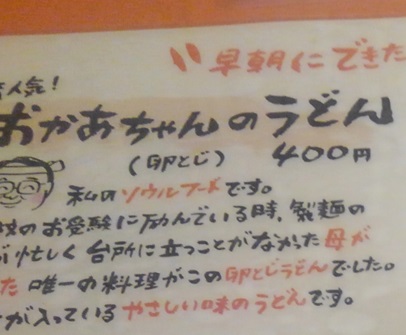 早朝にできた
人気!
おかあちゃんのうどん
(卵とじ) 400円
私のソウルフードです。
のお受験に励んでいる時、製麺の
が忙しく台所に立つことがなかった母が
た唯一の料理がこの卵とじうどんでした。
が入っているやさしい味のうどんです。